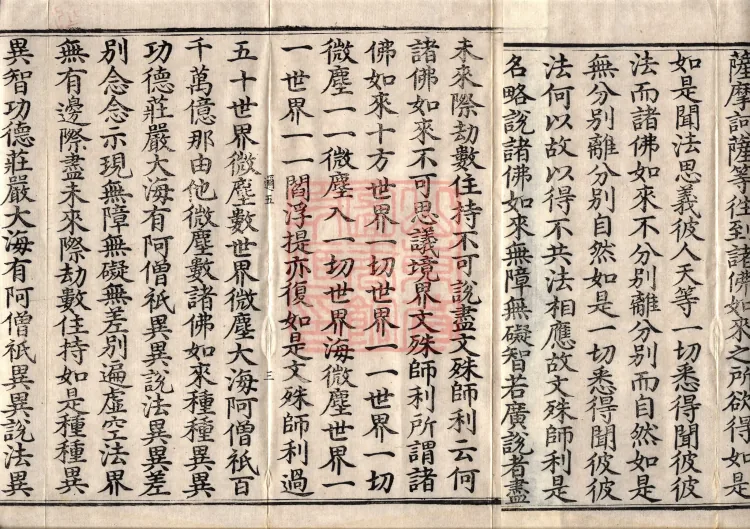 薩摩訶薩等往到諸佛如來之所欲得如是
如是聞法思義彼人天等一切悉得聞彼彼
法而諸佛如來不分別離分別而自然如是
無分別離分別自然如是一切悉得聞彼彼
法何以故以得不共法相應故文殊師利是
名略說諸佛如來無障無礙智若廣說者盡
未來際劫數住持不可說盡文殊師利云何
諸佛如來不可思議境界文殊師利所謂諸
佛如來十方世界一切世界一一世界一切
微塵一一微塵入一切世界海微塵世界一
一世界一一閻浮提亦復如是文殊師利過
五十世界微塵數世界微塵大海阿僧祇百
千萬億那由他微塵數諸佛如來種種異異
功德莊嚴大海有阿僧祇異異說法異異差
別念念示現無障無礙無差別遍虛空法界
無有邊際盡未來際劫數住持如是種種異
異智功德莊嚴大海有阿僧祇異異說法異
五
三